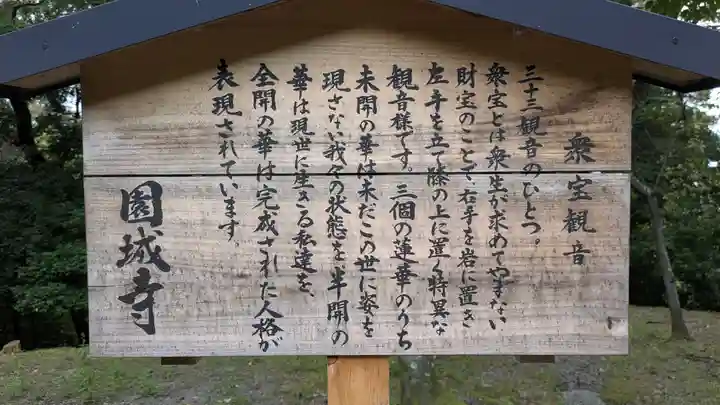 衆宝観音
三十三観音のひとつ。
衆宝とは衆生が求めてやまない
財宝のことで、右手を岩に置き
左手を立て膝の上に置く特異な
観音様です。三個の蓮華のうち
未開の華は未だこの世に姿を
現さない我々の状態を、半開の
華は現世に生きる私達を、
全開の華は完成された人格が
表現されています
園城寺